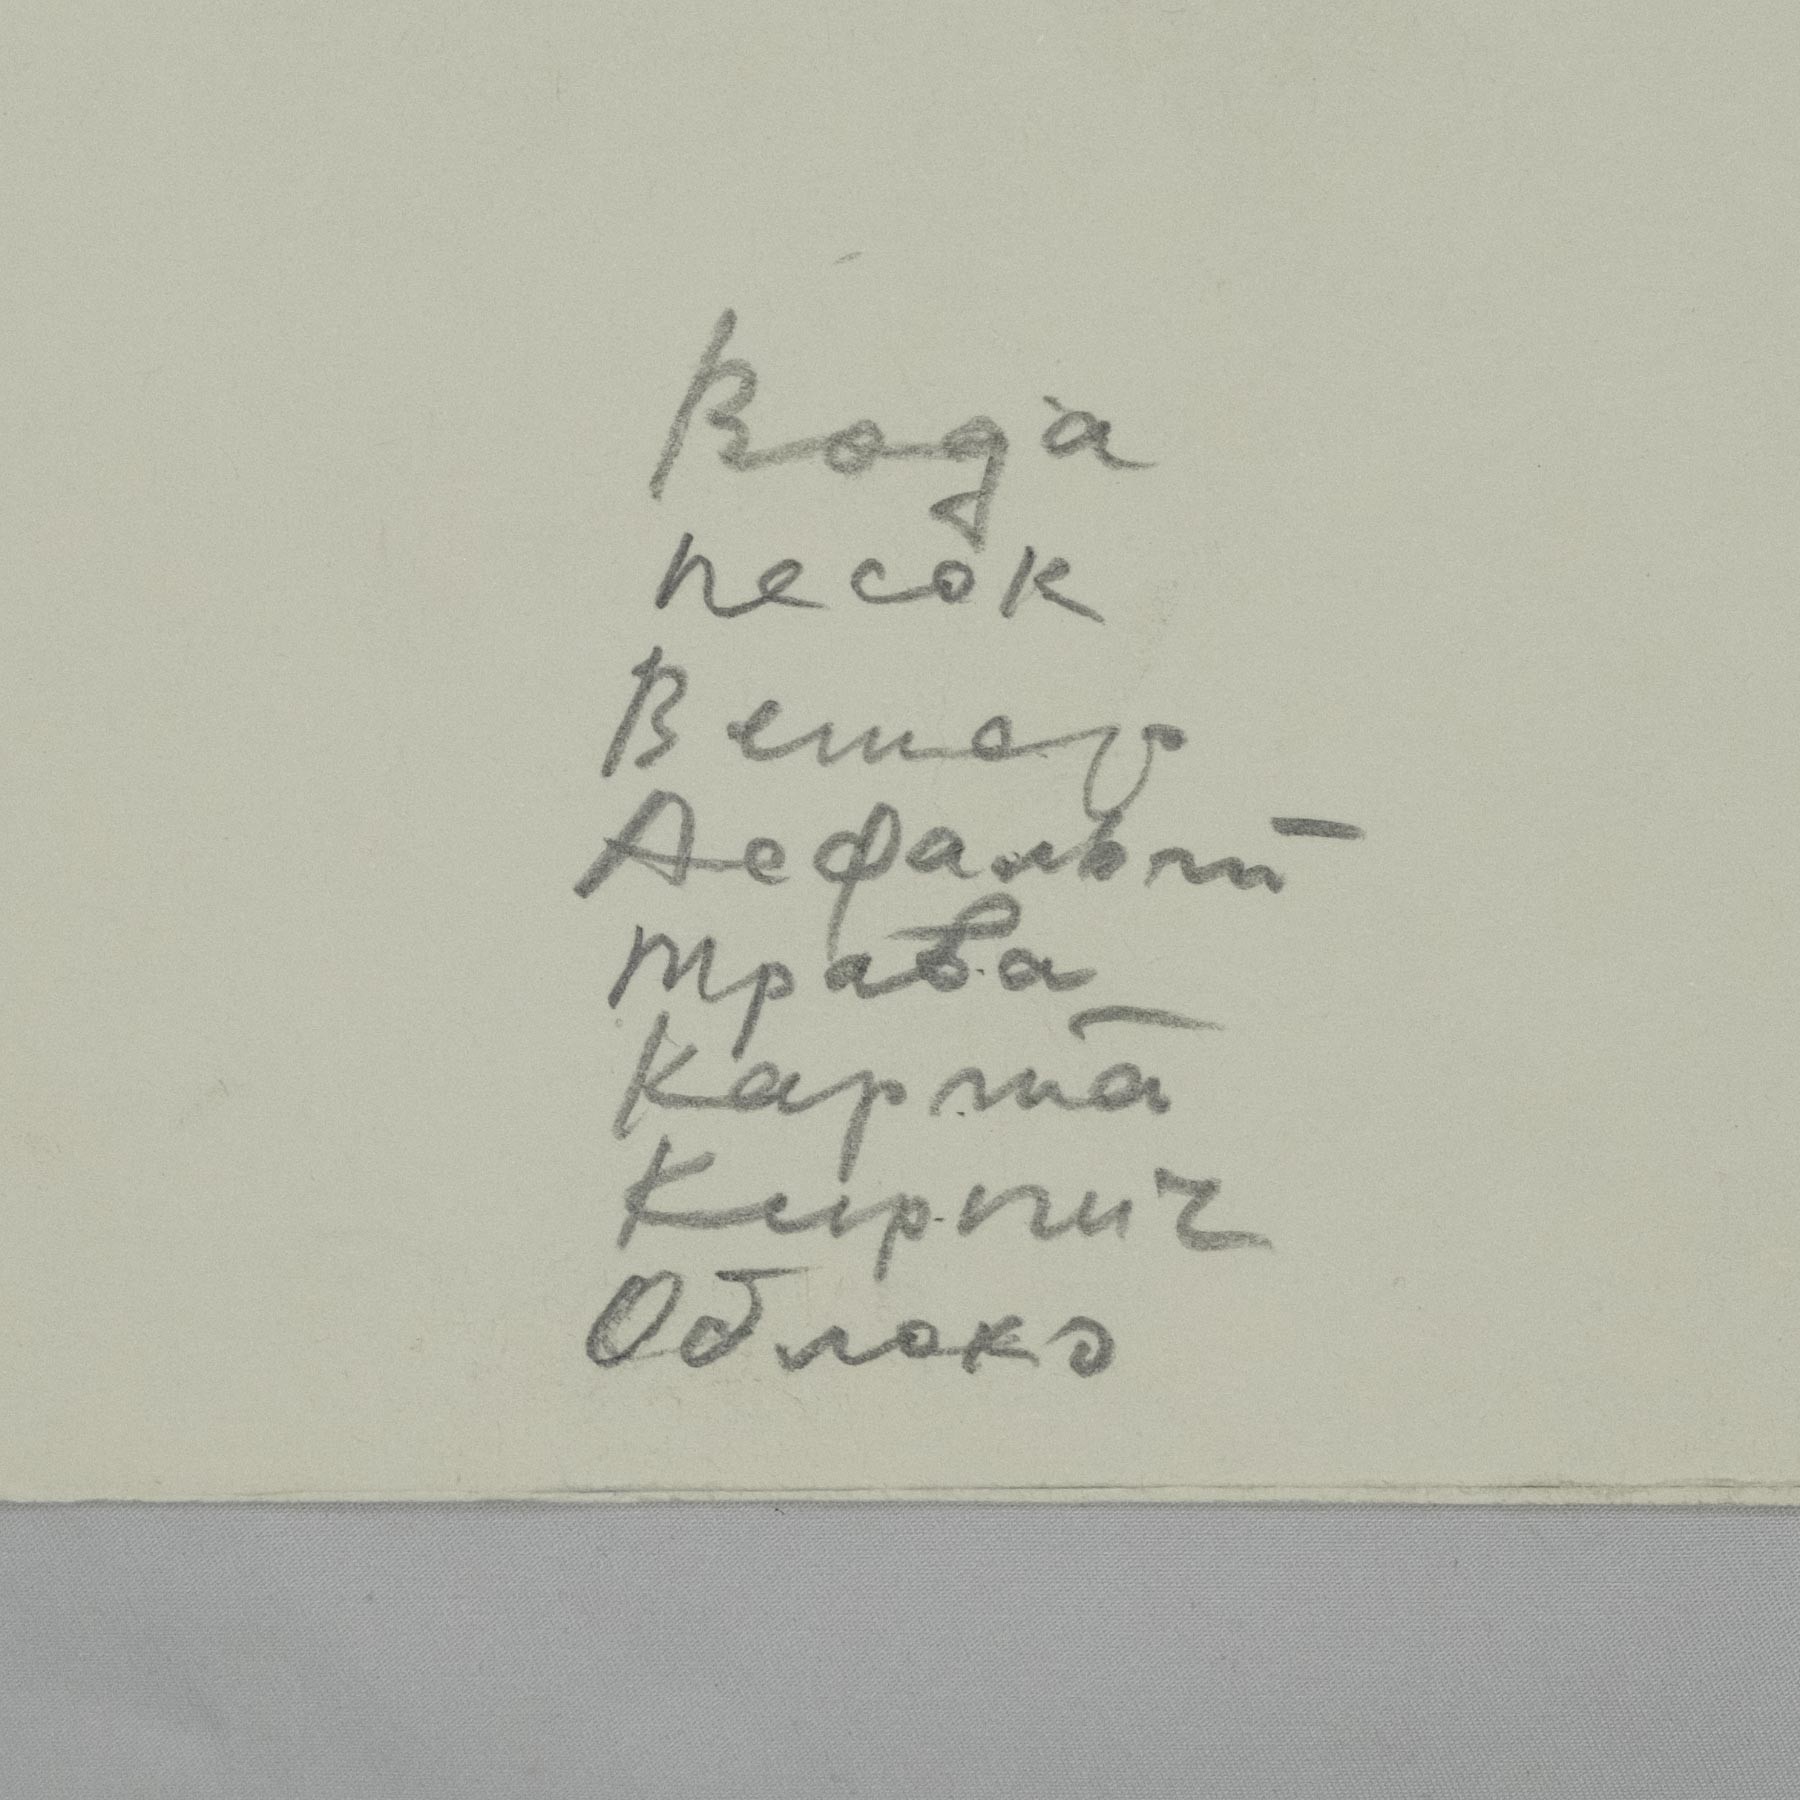 Вода
песок
Ветер
Асфальт
трава
Карта
Кирпич
Облако